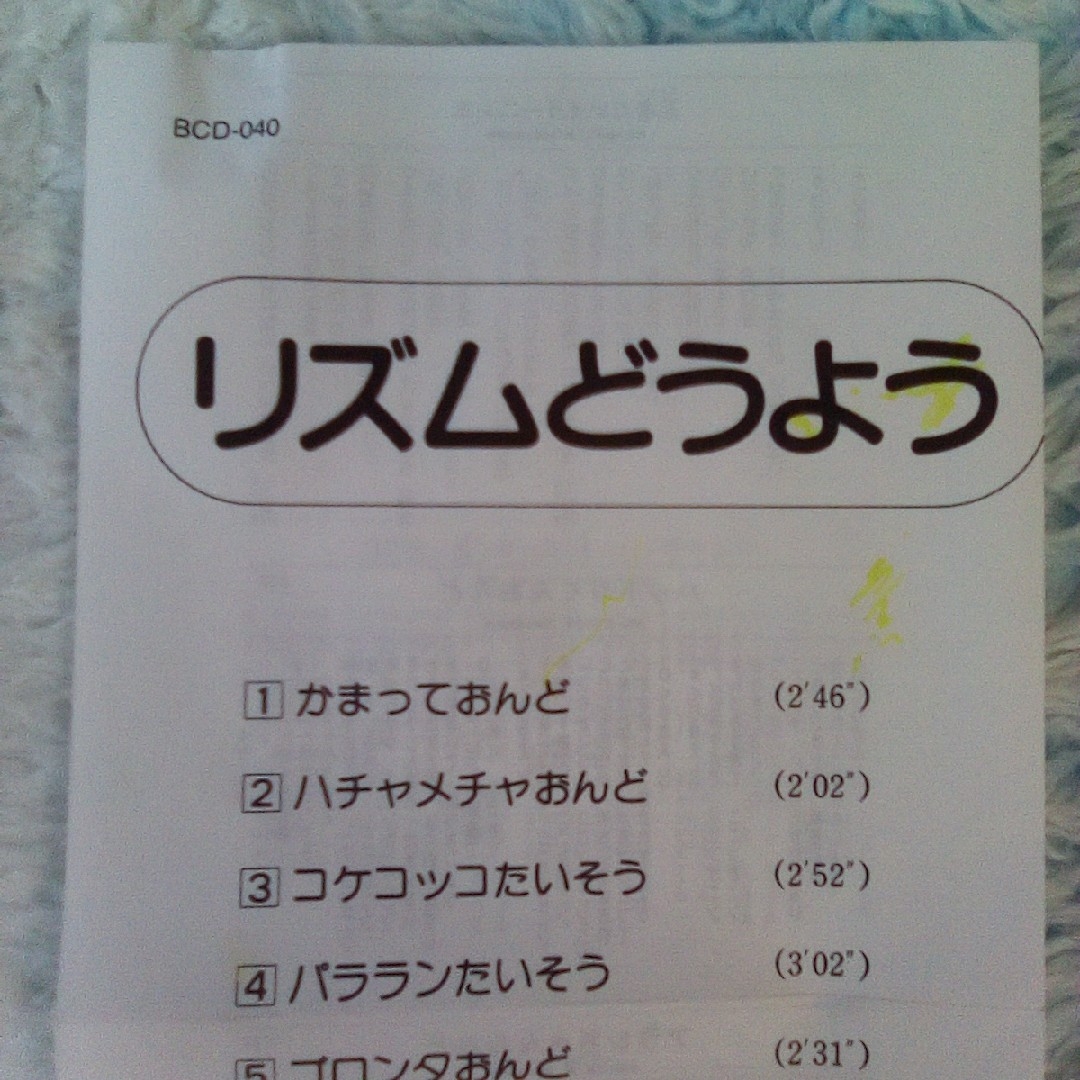 BCD-040
リズムどうよう
1 かまっておんど (2'46")
2 ハチャメチャおんど (2'02")
3 コケコッコたいそう (2'52")
4 パラランたいそう (3'02")
5 ゴロンタおんど (2'31")